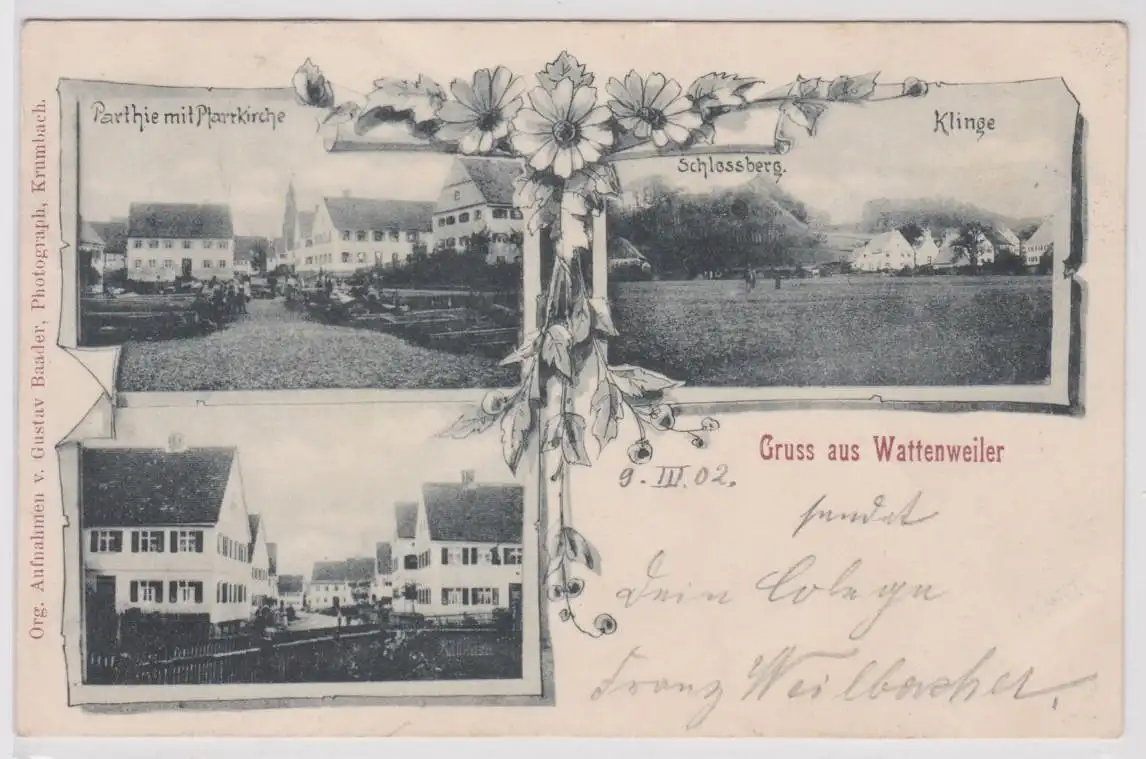 Parthie mit Pfarrkirche
Klinge
Schlossberg.
Org. Aufnahmen v. Gustav Baader, Photograph, Krumbach.
Gruss aus Wattenweiler
9. III. 02.
sendet
Dein Colege
Franz Weilbacher.